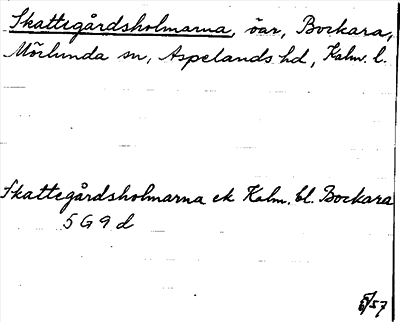 Skattegårdsholmarna, öar, Bockara,
Mörlunda sn, Aspelands hd, Kalm. l.
Skattegårdsholmarna ek Kalm. bl. Bockara
5 G 9 d